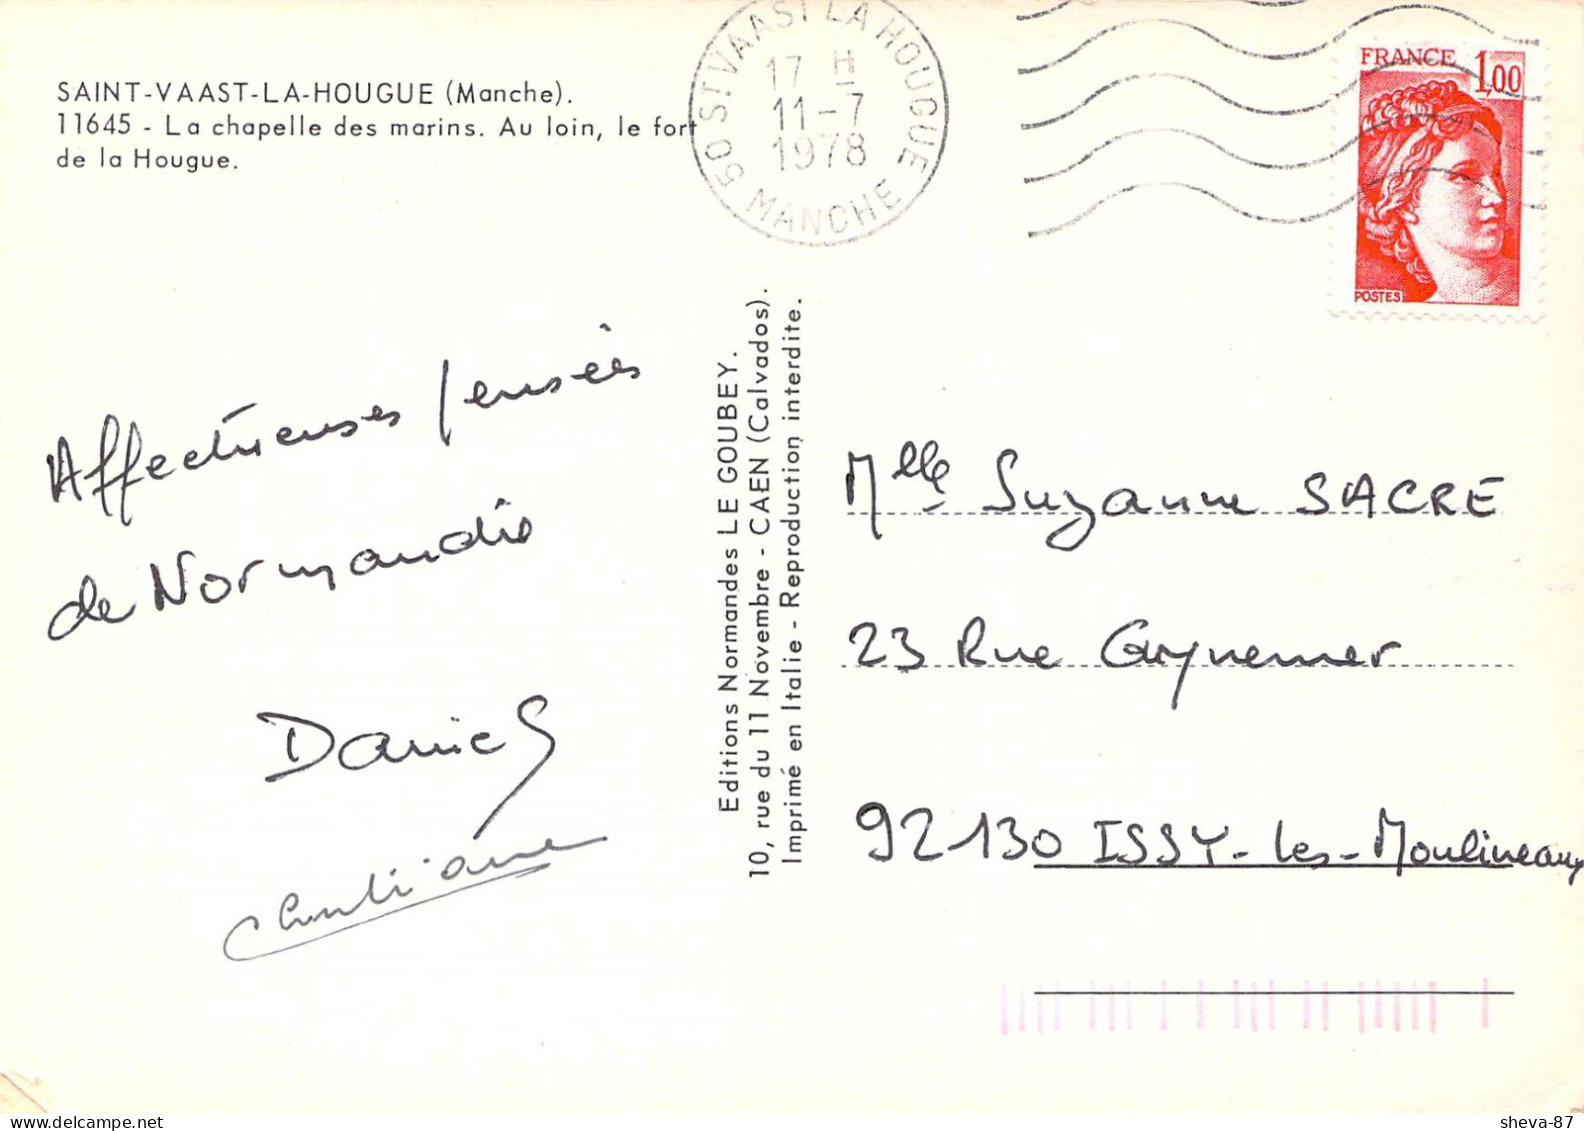 SAINT-VAAST-LA-HOUGUE (Manche).
11645 - La chapelle des marins. Au loin, le fort
de la Hougue.
50 ST VAAST LA HOUGUE
17 H
11-7
1978
MANCHE
FRANCE 1,00
POSTES
Affectueuses pensées
de Normandie
Daniel
Christiane
Editions Normandes LE GOUBEY.
10, rue du 11 Novembre - CAEN (Calvados).
Imprimé en Italie - Reproduction interdite.
Mlle Suzanne SACRE
23 Rue Guynemer
92130 ISSY-les-Moulineaux
sheva-87